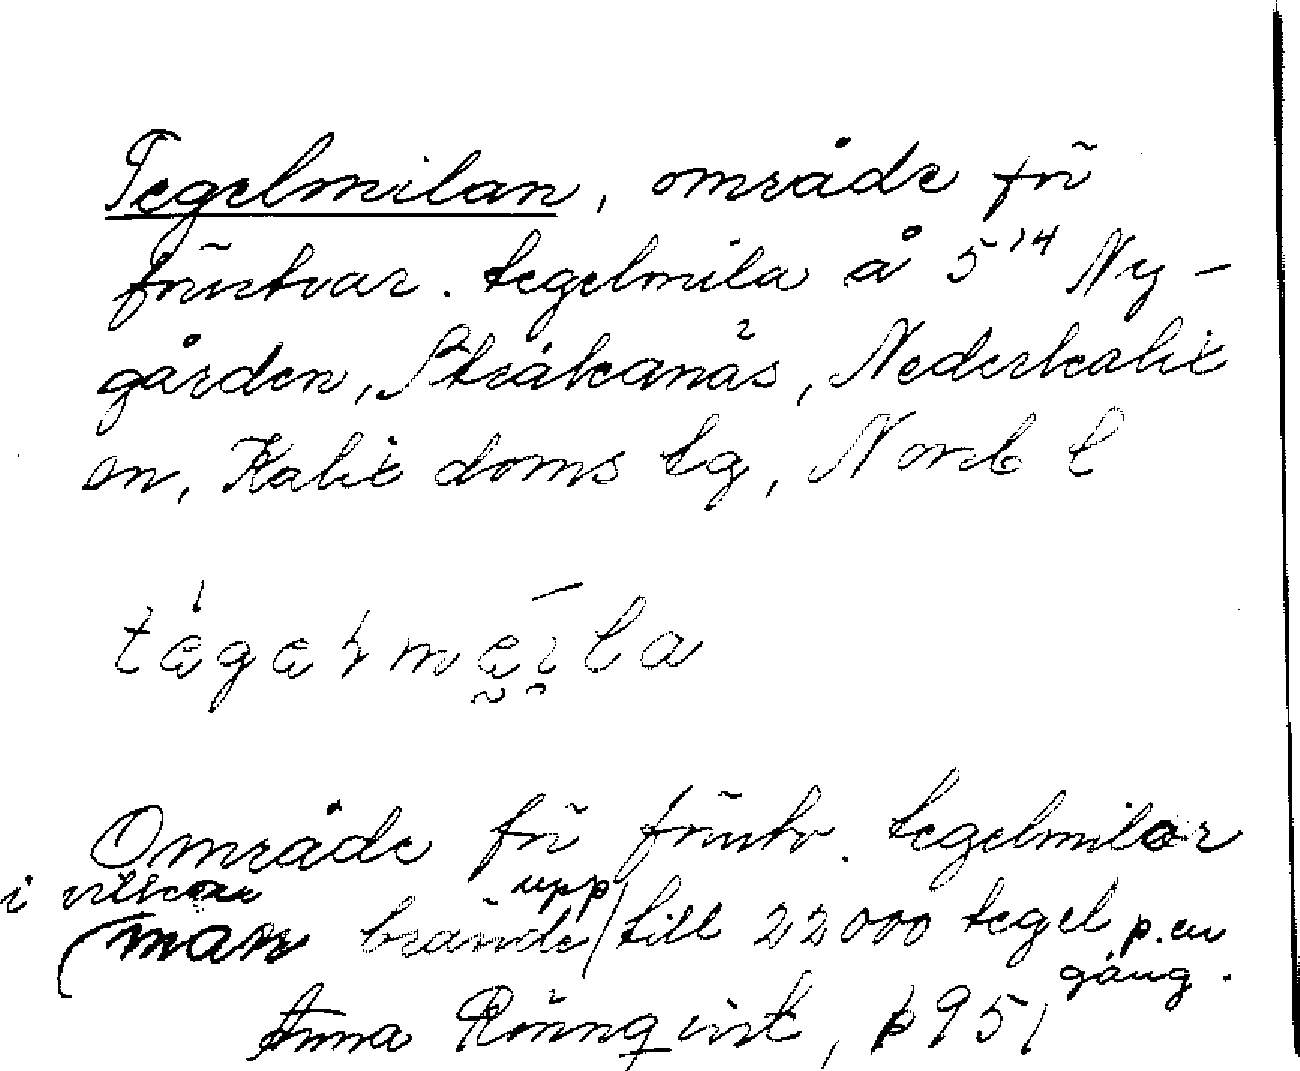 Tegelmilan, område för
försvar. tegelmila å 5¹⁴ Ny-
gården, Stråkanäs, Nederkalix
sn, Kalix doms lg, Norrb l
Område för förutv. tegelmilor
i vilkar
man brände upp till 22000 tegel p. en
gång.
Anna Rönnqvist, 1951